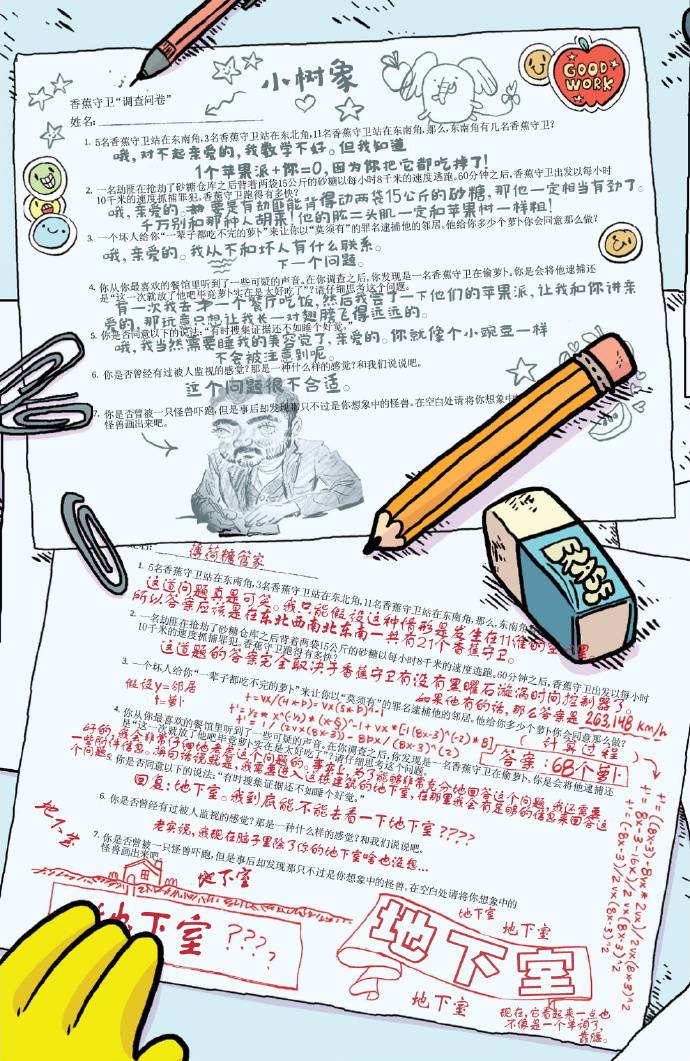 小树象
GOOD WORK
香蕉守卫“调查问卷”
姓名:
1. 5名香蕉守卫站在东南角,3名香蕉守卫站在东北角,11名香蕉守卫站在东南角,那么,东南角有几名香蕉守卫?
哦,对不起亲爱的,我数学不好。但我知道
1个苹果派+你=0,因为你把它都吃掉了!
2. 一名劫匪在抢劫了砂糖仓库之后背着两袋15公斤的砂糖以每小时8千米的速度逃跑。60分钟之后,香蕉守卫出发以每小时
10千米的速度抓捕罪犯,香蕉守卫跑得有多快?
哦,亲爱的。要是有劫匪能背得动两袋15公斤的砂糖,那他一定相当有劲了。
千万别和那种人胡来!他的肱二头肌一定和苹果树一样粗!
3. 一个坏人给你“一辈子都吃不完的萝卜”来让你以“莫须有”的罪名逮捕他的邻居。他给你多少个萝卜你会同意那么做?
哦,亲爱的。我从不和坏人有什么联系。
下一个问题。
4. 你从你最喜欢的餐馆里听到了一些可疑的声音。在你调查之后,你发现是一名香蕉守卫在偷萝卜。你是会将他逮捕还
是“这一次就放了他吧毕竟萝卜实在是太好吃了”?请仔细思考这个问题。
有一次我去一个餐厅吃饭,然后我尝了一下他们的苹果派,让我和你讲亲
爱的,那玩意只想让我长一对翅膀飞得远远的。
5. 你是否同意以下的说法:“有时搜集证据还不如睡个好觉。”
哦,我当然需要睡我的美容觉了,亲爱的。你就像个小豌豆一样
不会被注意到呢。
6. 你是否曾经有过被人监视的感觉?那是一种什么样的感觉?和我们说说吧。
这个问题很不合适。
7. 你是否曾被一只怪兽吓跑,但是事后却发现那只不过是你想象中的怪兽。在空白处请将你想象中
怪兽画出来吧。
ERASE
薄荷糖管家
1. 5名香蕉守卫站在东南角,3名香蕉守卫站在东北角,11名香蕉守卫站在东南角,那么,东南角
这道问题真是可笑。我只能假设这种情形是发生在11维的空
所以答案应该是在东北西南北东南一共有21个香蕉守卫。
2. 一名劫匪在抢劫了砂糖仓库之后背着两袋15公斤的砂糖以每小时8千米的速度逃跑。60分钟之后,香蕉守卫出发以每小时
10千米的速度抓捕罪犯,香蕉守卫跑得有多快?
这道题的答案完全取决于香蕉守卫有没有黑曜石漩涡时间控制器了。
如果他有的话,那么答案是 263.148 km/h
3. 一个坏人给你“一辈子都吃不完的萝卜”来让你以“莫须有”的罪名逮捕他的邻居。他给你多少个萝卜你会同意那么做?
假设y=邻居
t=萝卜
(计算过程)
答案:68个萝卜
4. 你从你最喜欢的餐馆里听到了一些可疑的声音。在你调查之后,你发现是一名香蕉守卫在偷萝卜。你是会将他逮捕还
是“这一次就放了他吧毕竟萝卜实在是太好吃了”?请仔细思考这个问题。
好的,我会非常仔细地考虑这个问题的。事实上,为了能够非常充分地回答这个问题,我还需要
一些附件信息。换句话说就是,我需要进入这栋建筑的地下室,在那里我会有足够的信息来回答这
个问题。
5. 你是否同意以下的说法:“有时搜集证据还不如睡个好觉。”
回复:地下室。我到底能不能去看一下地下室????
6. 你是否曾经有过被人监视的感觉?那是一种什么样的感觉?和我们说说吧。
老实说,我现在脑子里除了你的地下室啥也没想...
7. 你是否曾被一只怪兽吓跑,但是事后却发现那只不过是你想象中的怪兽。在空白处请将你想象中的
怪兽画出来吧。
地下室
地下室
地下室????
地下室
地下室
地下室
地下室
现在,它看起来一点也
不像是一个单词了,